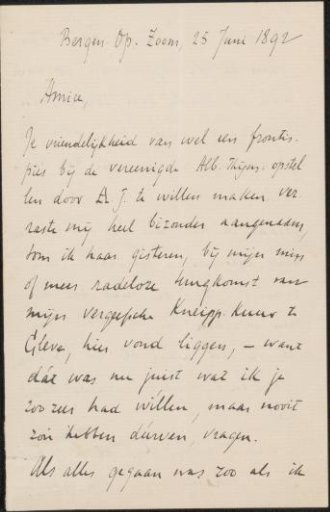 Bergen Op. Zoom, 25 Juni 1892
Amice,
Je vriendelijkheid van wel een frontis-
pies bij de vereenigde Alb. Thijm. opstel
len door A. J. te willen maken ver
raste mij heel bizonder aangenaam,
toen ik haar gisteren, bij mijn min
of meer radeloze terugkomst van
mijn vergeefsche Kneipp-Kuur te
Cleve, hier vond liggen, – want
dát was nu juist wat ik je
zoo zeer had wíllen, maar nooit
zou hebben dúrven, vragen.
Als alles gegaan was zoo als ik